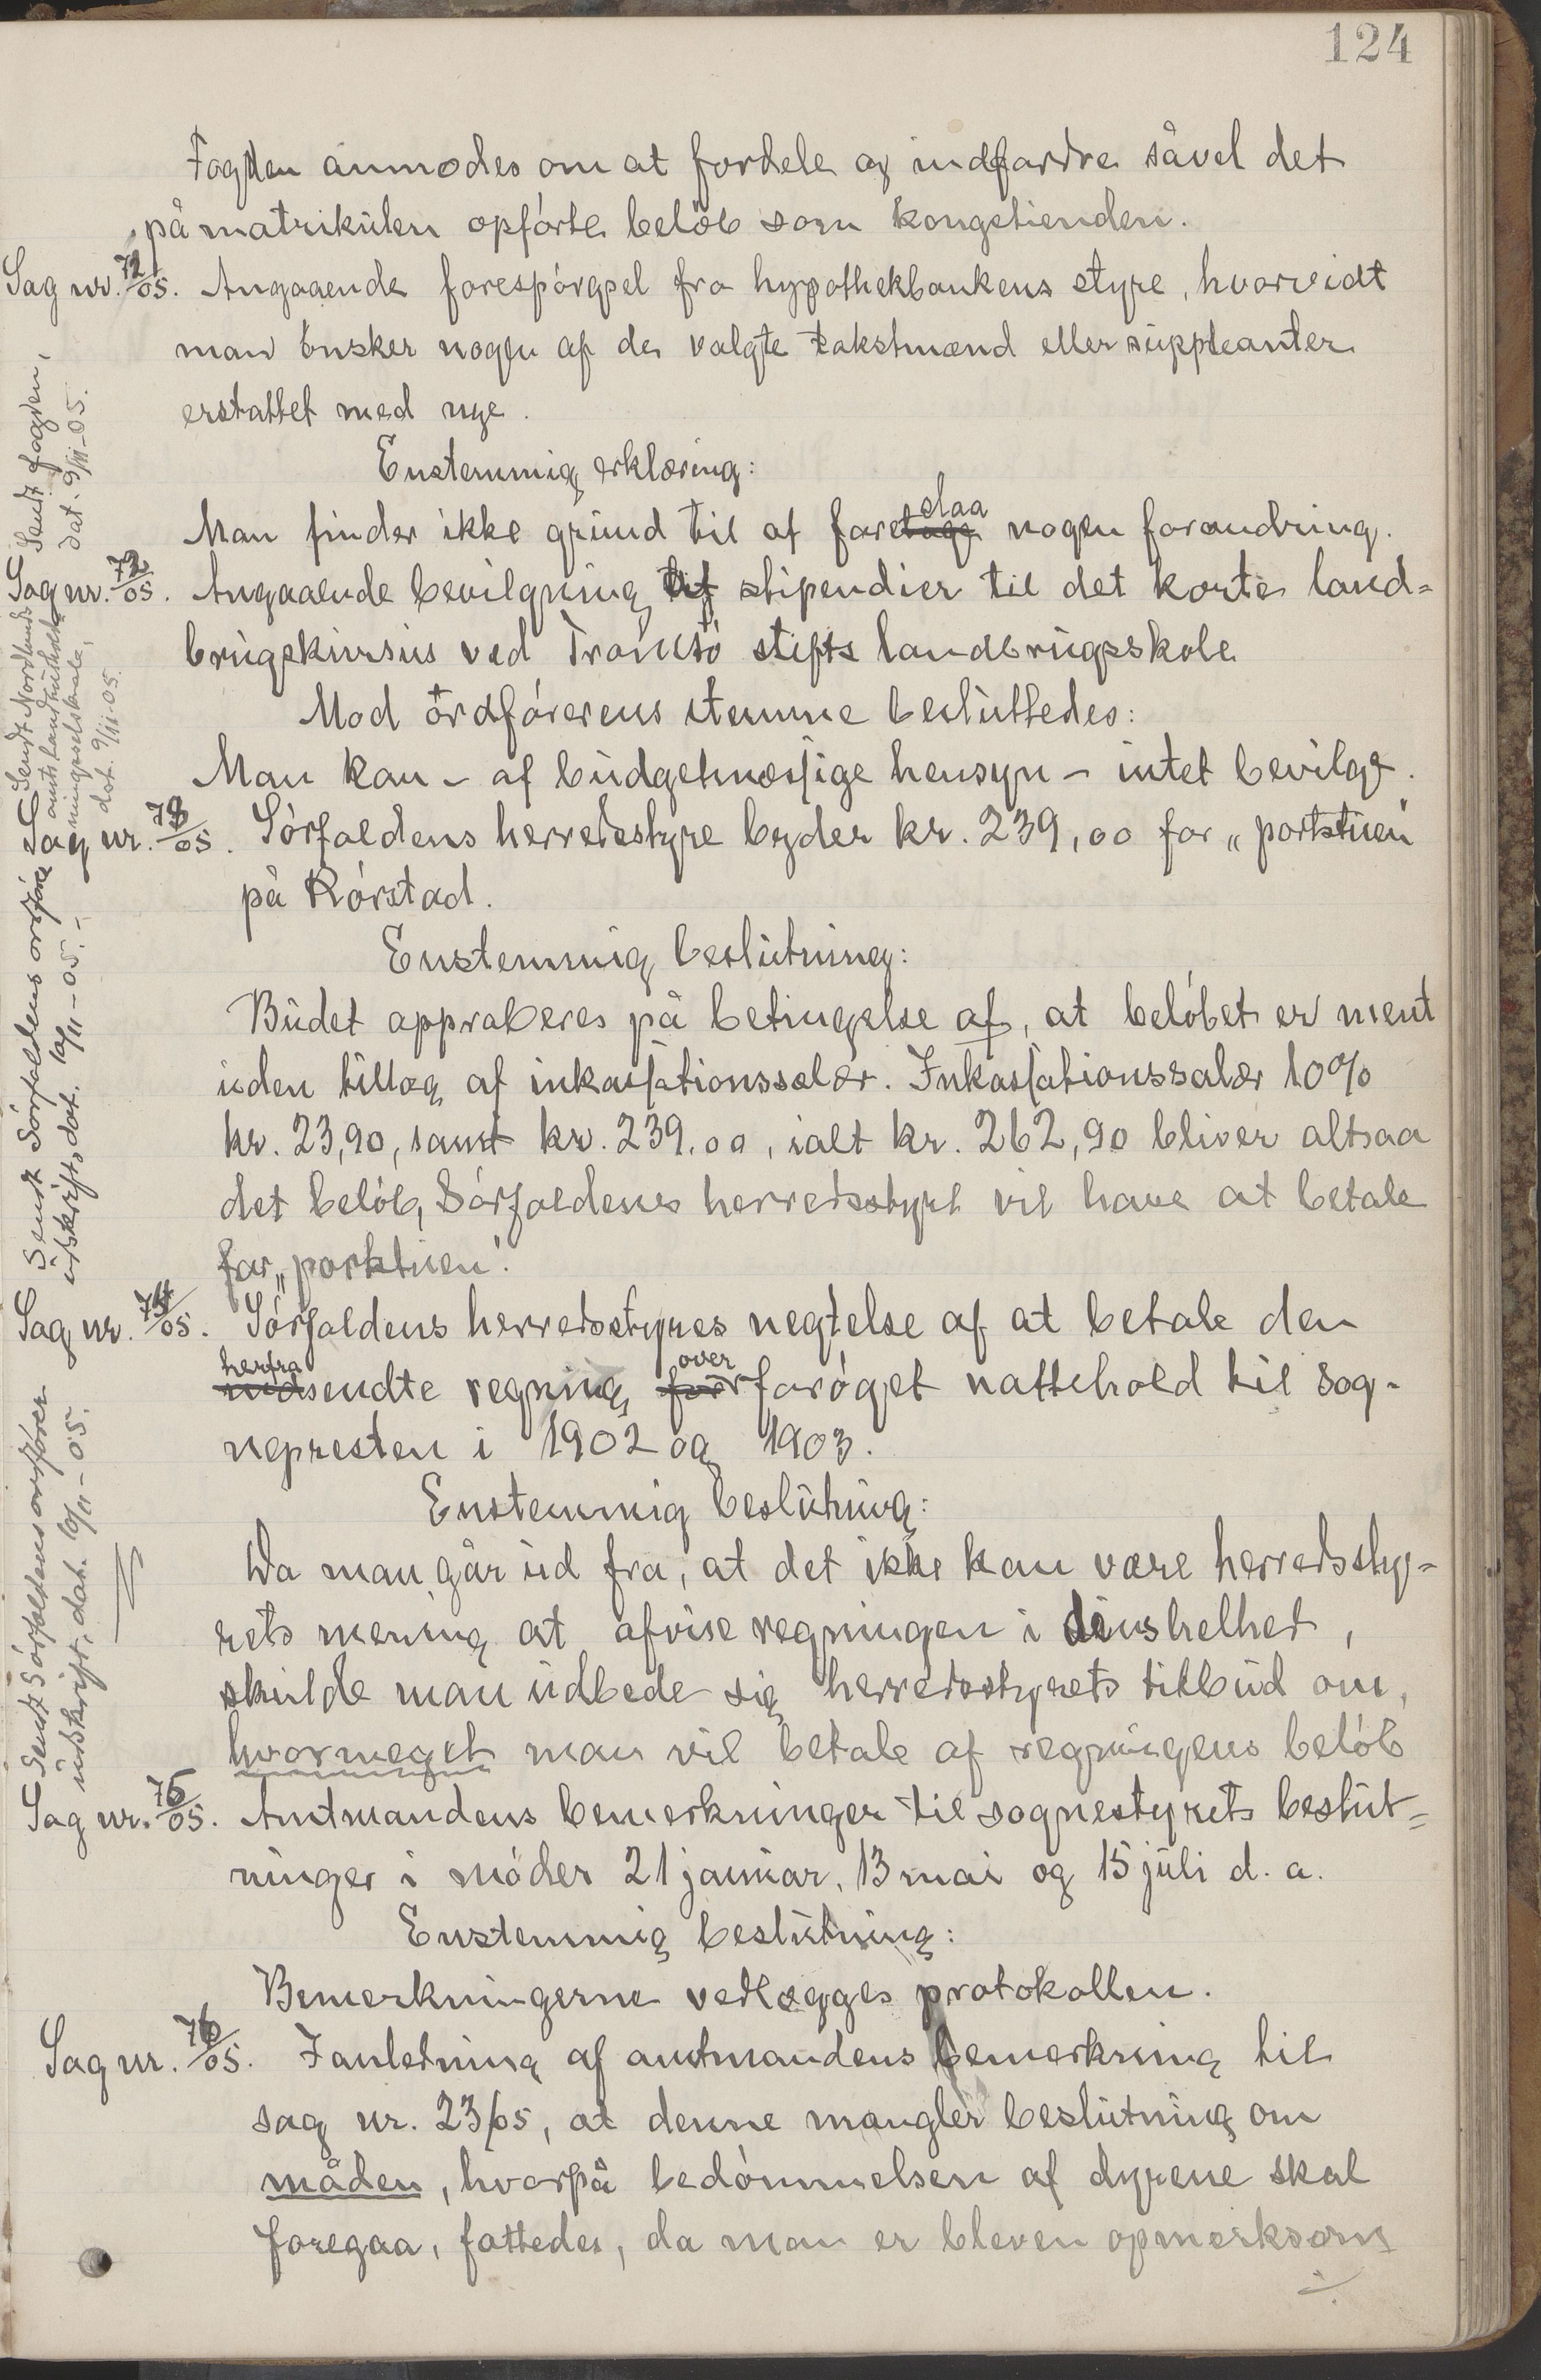 124
Fogden anmodes om at fordele og indfordre såvel det
på matrikulen opførte beløb som kongetienden.
Sag nr. 71/05. Angaaende forespørgsel fra hypothekbankens styre, hvorvidt
man ønsker nogen af de valgte takstmænd eller suppleanter
erstattet med nye.
Enstemmig erklæring:
Man finder ikke grund til at foretage slaa nogen forandring.
Sendt fogden,
dat. 9/11-05.
Sag nr. 72/05. Angaaende bevilgning af stipendier til det korte land=
brugskursus ved Tromsø stifts landbrugsskole
Mod ordførerens stemme besluttedes:
Man kan – af budgetmæssige hensyn – intet bevilge.
Sendt Nordlands
amts landhushold=
ningsselskab,
dat. 9/11-05.
Sag nr. 73/05. Sørfoldens herredsstyre byder kr. 239,00 for „portstuen"
på Rørstad.
Enstemmig beslutning:
Budet approberes på betingelse af, at beløbet er ment
uden tillæg af inkassationssalær. Inkassationssalær 10%
kr. 23,90, samt kr. 239.00, ialt kr. 262,90 bliver altsaa
det beløb, Sørfoldens herredsstyre vil have at betale
for „portstuen".
Sendt Sørfoldens ordfører
udskrift, dat. 10/11-05. –
Sag nr. 74/05. Sørfoldens herredsstyres negtelse af at betale den
herfra
indsendte regning for over forøget nattehold til sog-
nepresten i 1902 og 1903.
Enstemmig beslutning:
Da man går ud fra, at det ikke kan være herredssty=
rets mening at afvise regningen i sin helhet,
skulde man udbede sig herredsstyrets tilbud om,
hvormeget man vil betale af regningens beløb
Sendt Sørfoldens ordfører
udskrift, dat. 10/11-05.
Sag nr. 75/05. Amtmandens bemerkninger til sognestyrets beslut=
ninger i møder 21 januar, 13 mai og 15 juli d. a.
Enstemmig beslutning:
Bemerkningerne vedlægges protokollen.
Sag nr. 76/05. I anledning af amtmandens bemerkning til
sag nr. 23/05, at denne mangler beslutning om
måden, hvorpå bedømmelsen af dyrene skal
foregaa, fattedes, da man er bleven opmerksom